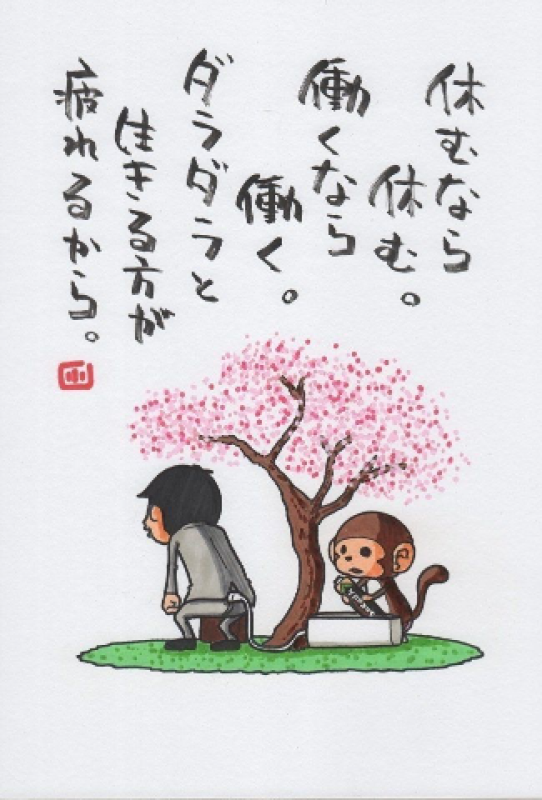 休むなら
休む。
働くなら
働く。
ダラダラと
生きる方が
疲れるから。